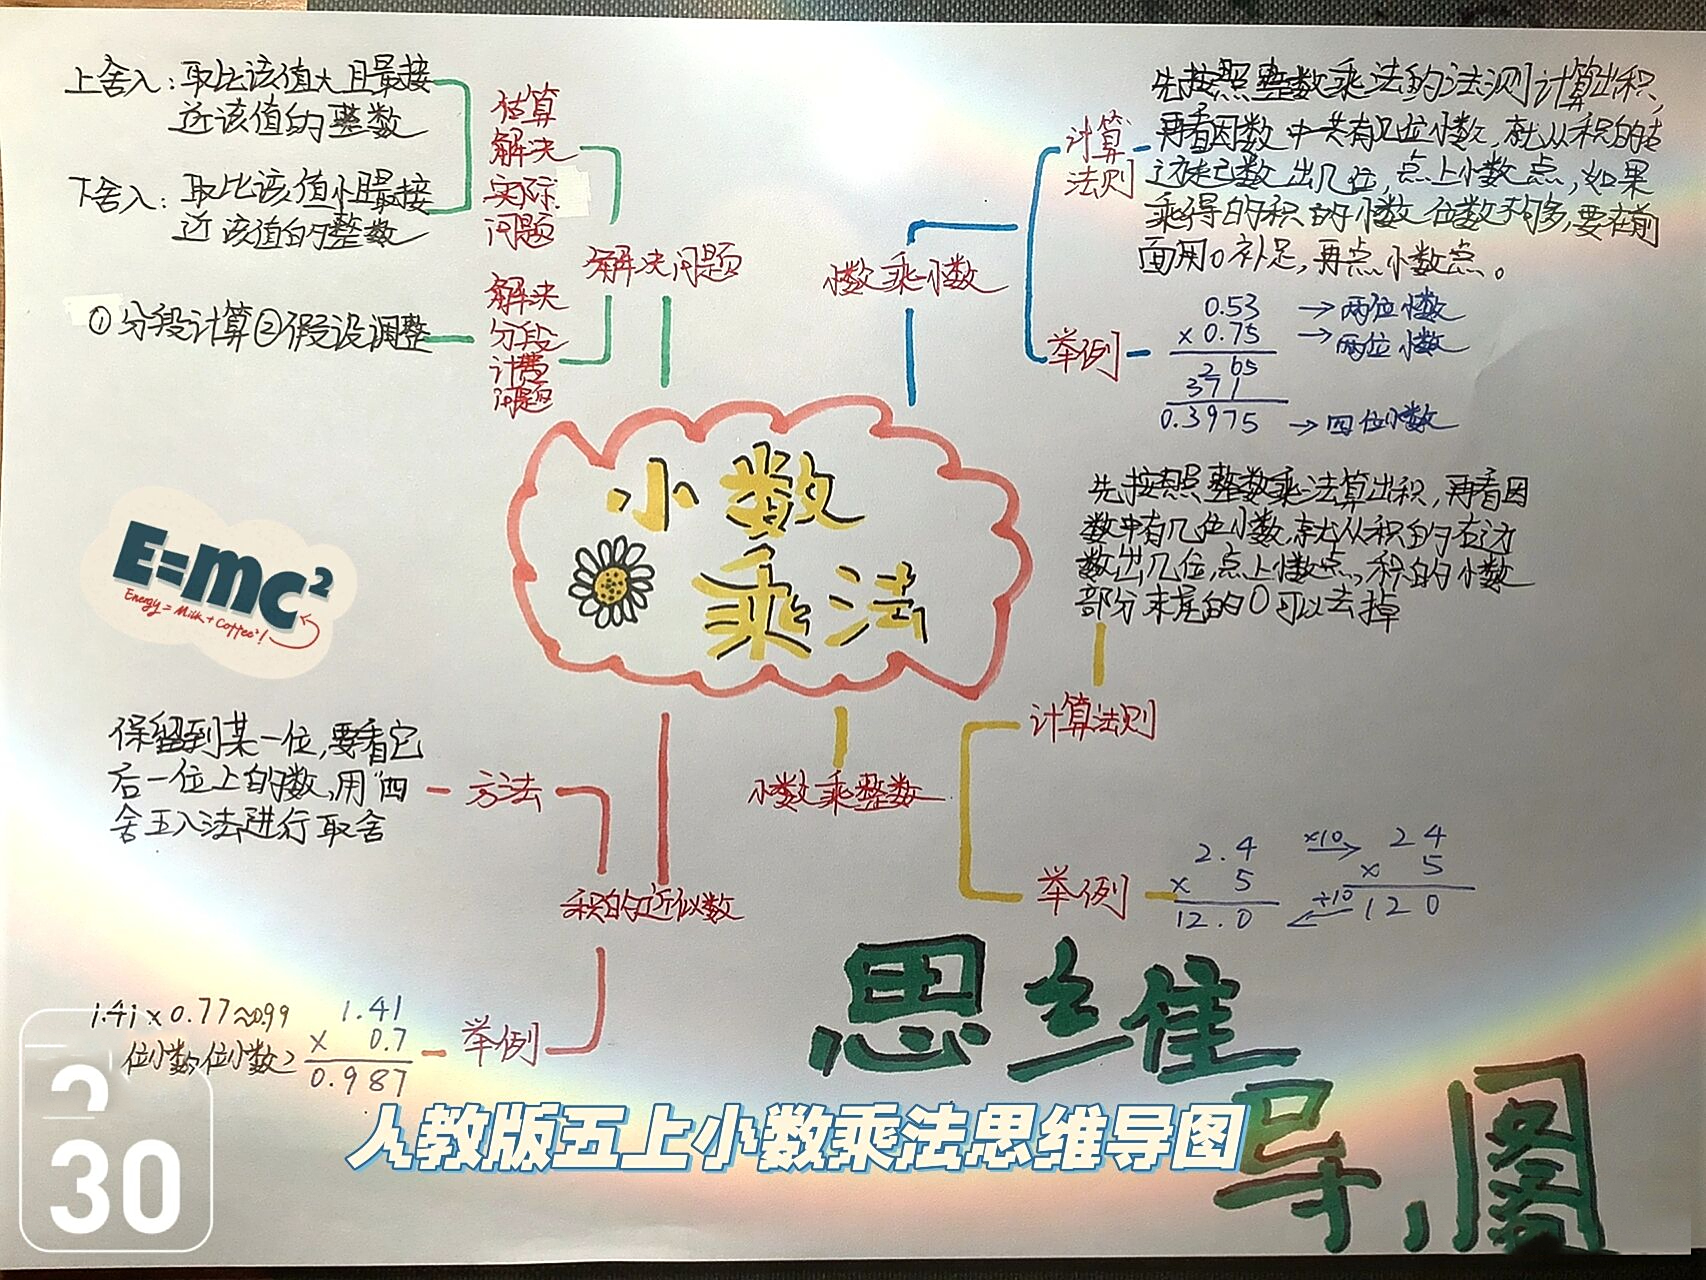 上舍入：取比该值大且最接
近该值的整数
下舍入：取比该值小且最接
近该值的整数
估算
解决
实际
问题
①分段计算②假设调整
解决
分段
计费
问题
解决问题
小数乘小数
计算
法则
先按照整数乘法的法则计算出积，
再看因数中一共有几位小数，就从积的右
边起数出几位，点上小数点，如果
乘得的积的小数位数不够，要在前
面用0补足，再点小数点。
举例
0.53 →两位小数
×0.75 →两位小数
265
371
0.3975 →四位小数
小数
乘法
E=mc²
Energy = Milk + Coffee²!
先按照整数乘法算出积，再看因
数中有几位小数，就从积的右边
数出几位，点上小数点，积的小数
部分末尾的0可以去掉
计算法则
小数乘整数
举例
2.4 ×10 24
× 5 × 5
12.0 ÷10 120
保留到某一位，要看它
后一位上的数，用"四
舍五入法进行取舍
方法
积的近似数
举例
1.41×0.77≈0.99
1.41
× 0.7
0.987
思维
导图
人教版五上小数乘法思维导图
30